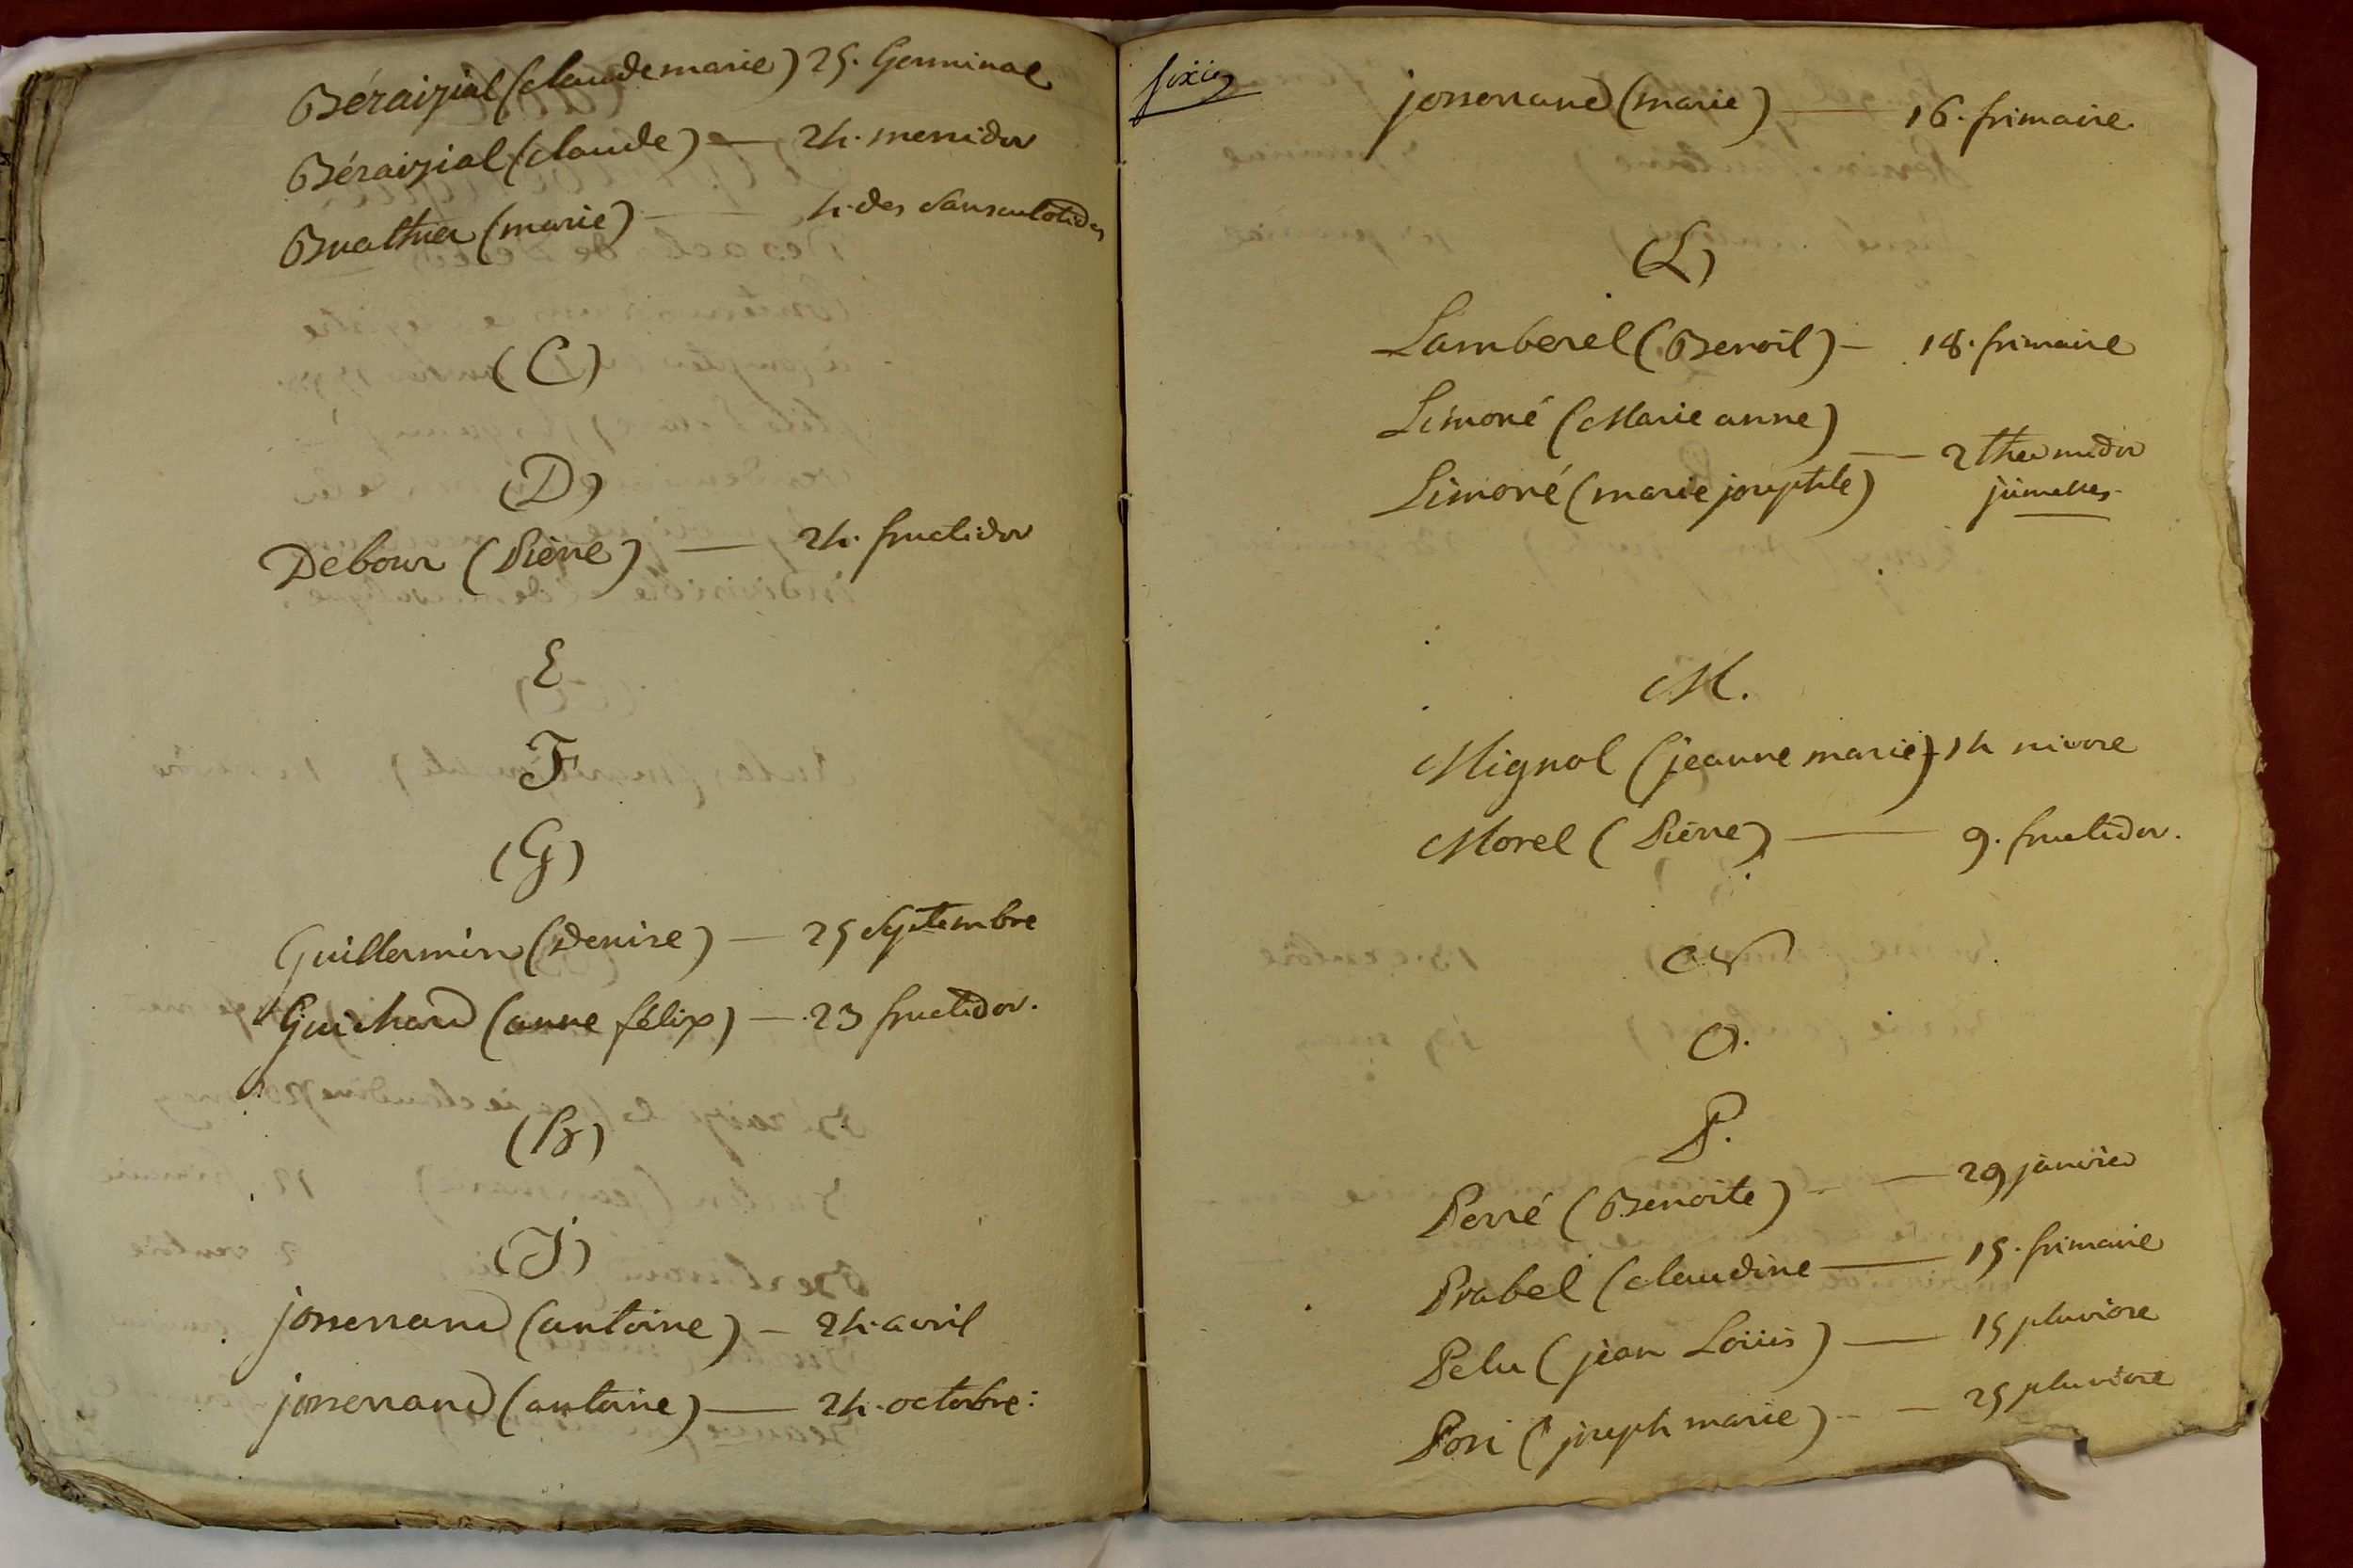 Béraizial (claude marie) 25. Germinal
Béraizial (claude) — 24. messidor
Buathier (marie) — 4. des sansculotides
(C)
(D)
Debour (Pière) — 24. fructidor
E
F
(G)
Guillermin (Denise) — 25 Septembre
Guichard (anne félix) — 23 fructidor.
(H)
(J)
josserand (antoine) — 24. avril
josserand (antoine) — 24. octobre:
sixie
josserand (marie) — 16. frimaire
(L)
Lamberel (Benoit) — 18. frimaire
Limoné (Marie anne)
— 2 thermidor
Limoné (marie josephte)
jumelles.
M.
Mignot (jeanne marie) - 14 nivose
Morel (Pière) — 9. fructidor.
N
O.
P.
Perré (Benoite) - — 29 janvier
Prabel (claudine — 15. frimaire
Pelu (jean Loüis) — 15 pluviose
Pori (joseph marie) - — 25 pluviose